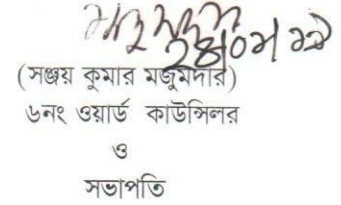 ২৪/০৯/১৯
(সঞ্জয় কুমার মজুমদার)
৬নং ওয়ার্ড কাউন্সিলর
ও
সভাপতি